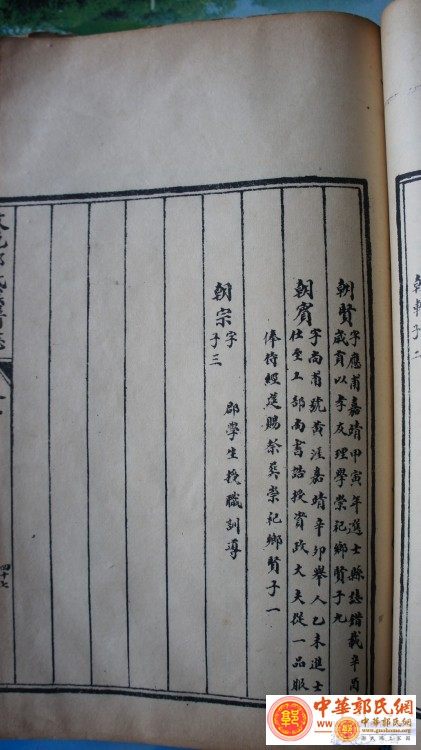 朝賢 字應甫嘉靖甲寅年進士縣誌錯載辛酉
歲貢以孝友理學崇祀鄉賢子九
朝賓 字尚甫號黃涯嘉靖辛卯舉人乙未進士
仕至工部尚書誥授資政大夫從一品服
俸侍經筵賜祭葬崇祀鄉賢子一
朝宗 字 郡學生授職訓導
子三
四十七
中華郭氏網
www.guohome.org